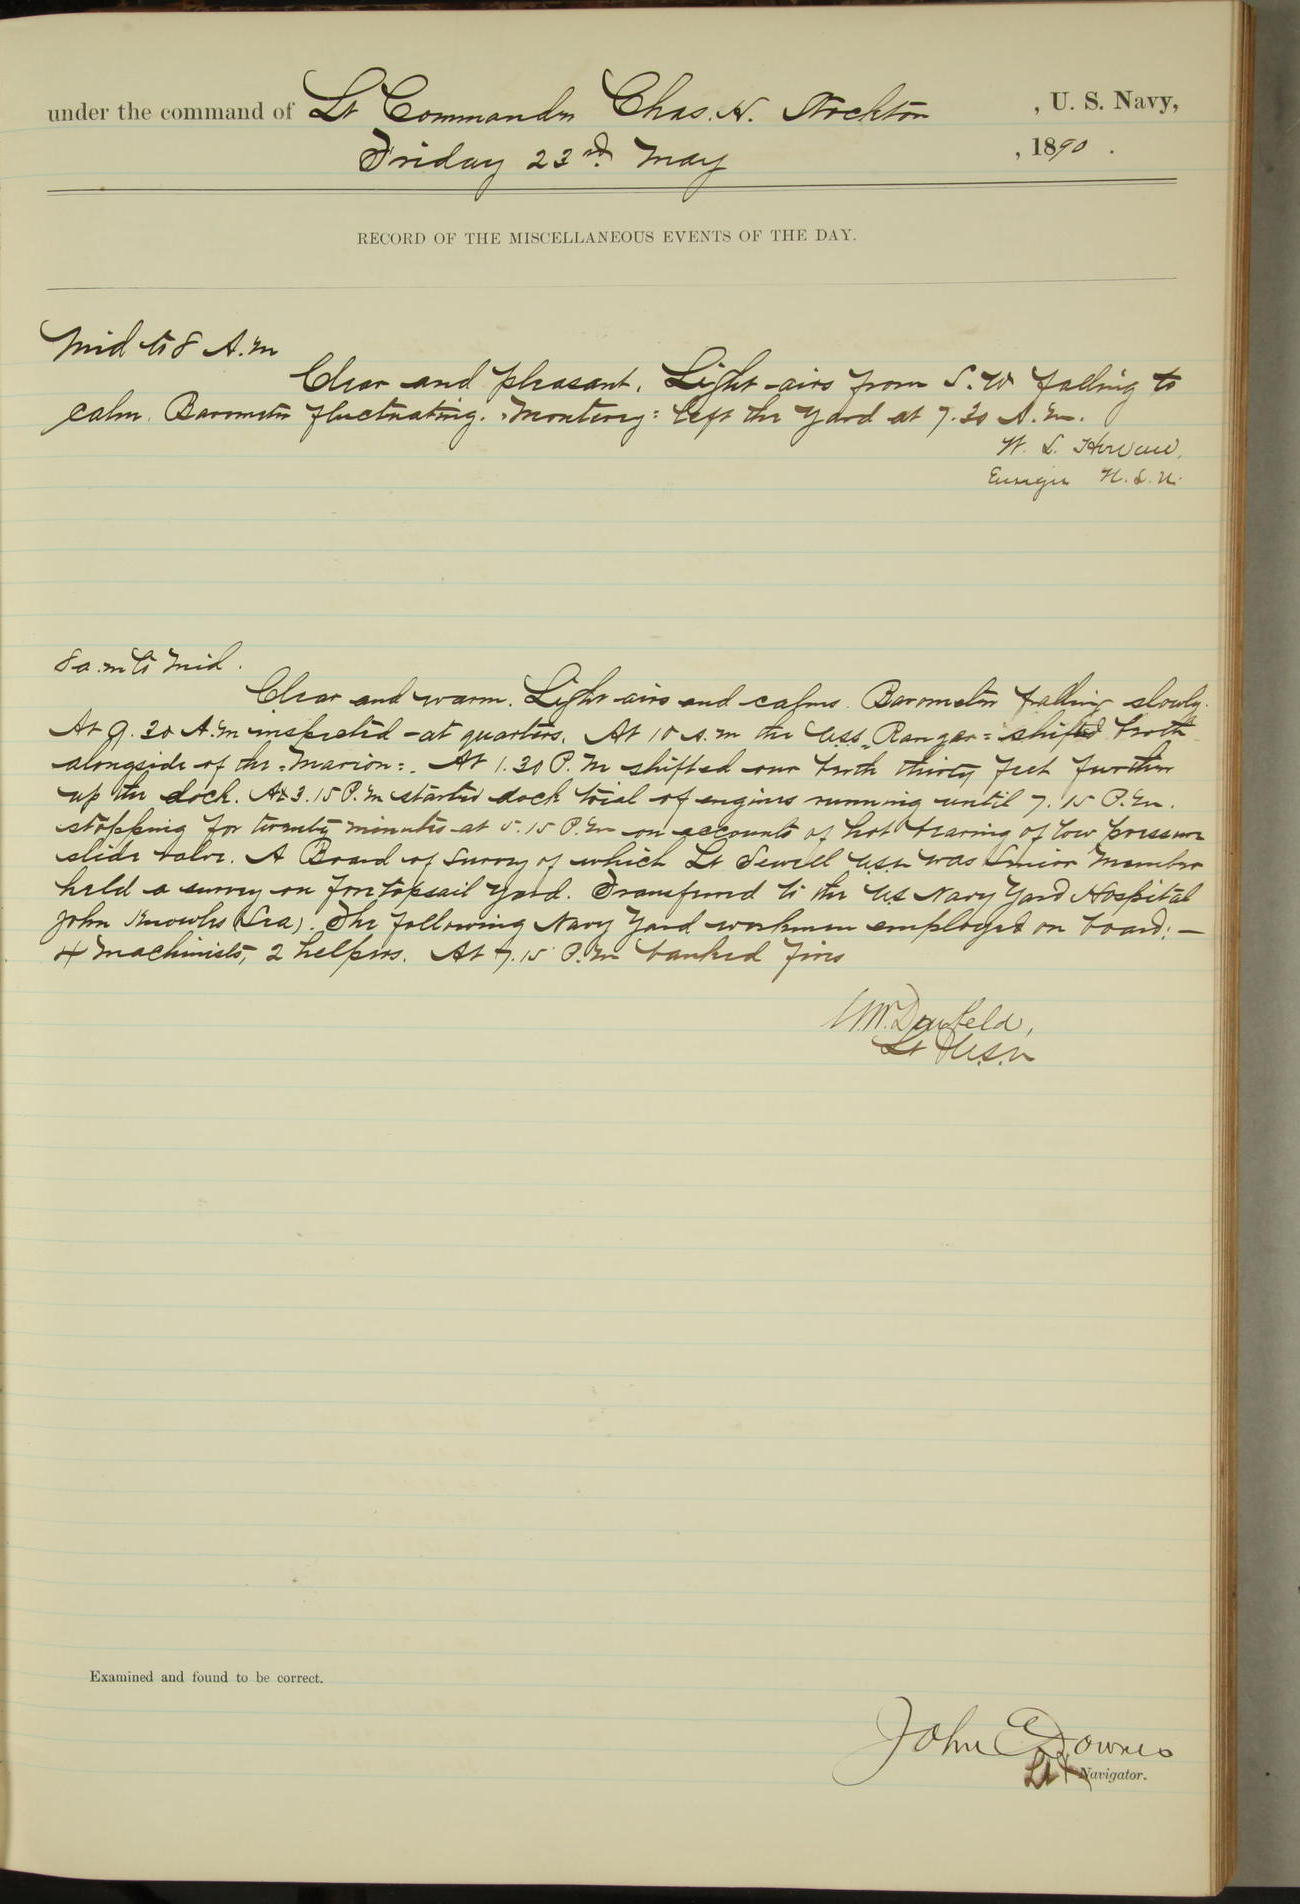 under the command of Lt Commander Chas. H. Stockton, U. S. Navy,
Friday 23rd May, 1890.
RECORD OF THE MISCELLANEOUS EVENTS OF THE DAY.
Mid to 8 A.M
Clear and pleasant. Light airs from S.W falling to
calm. Barometer fluctuating. "Monterey" left the Yard at 7.30 A.M.
W. L. Howard,
Ensign U.S.N.
8 a.m to Mid.
Clear and warm. Light airs and calms. Barometer falling slowly.
At 9.30 A.M inspected at quarters. At 10 A.M the USS "Ranger" shifted berth
alongside of the "Marion". At 1.30 P.M shifted our berth thirty feet further
up the dock. At 3.15 P.M started dock trial of engines running until 7.15 P.M.
stopping for twenty minutes at 5.15 P.M on accounts of hot bearing of low pressure
slide valve. A Board of Survey of which Lt Sewell USN was Senior Member
held a survey on foretopsail yard. Transferred to the US Navy Yard Hospital
John Knowles (Sea). The following Navy Yard workmen employed on board:—
4 Machinists, 2 helpers. At 7.15 P.M banked fires
Lt U.S.N
Examined and found to be correct.
John Downes
Lt & Navigator.